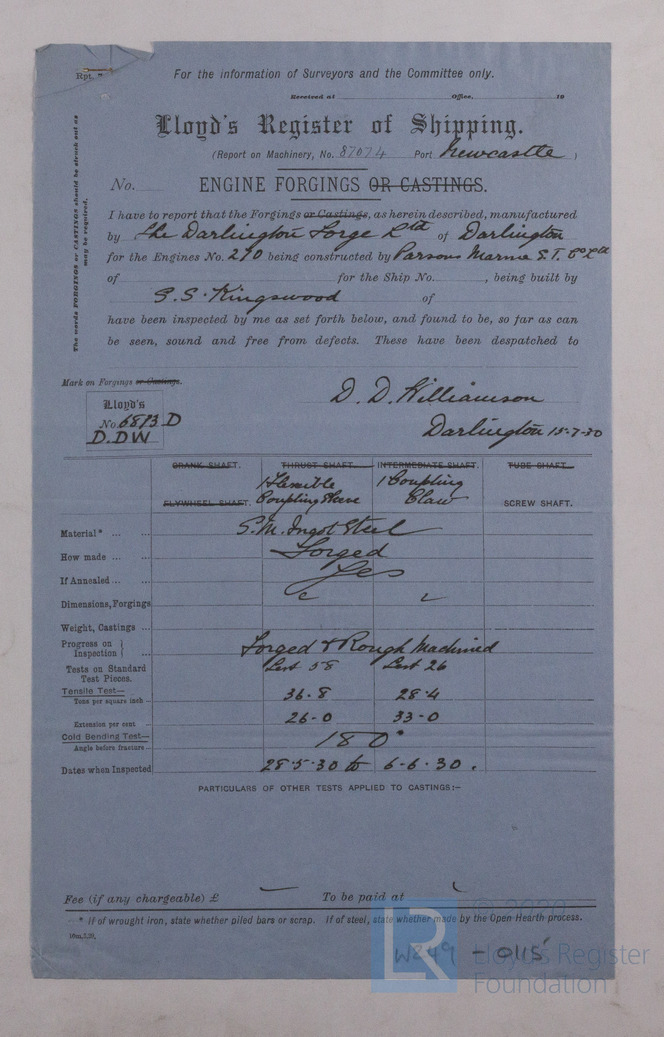 Rpt. 7
For the information of Surveyors and the Committee only.
Received at Office, 19
Lloyd's Register of Shipping.
(Report on Machinery, No. 87074 Port Newcastle )
No. ENGINE FORGINGS OR CASTINGS.
The words FORGINGS or CASTINGS should be struck out as may be required.
I have to report that the Forgings or Castings, as herein described, manufactured
by The Darlington Forge Ltd of Darlington
for the Engines No. 270 being constructed by Parsons Marine S.T. Co Ltd
of for the Ship No. , being built by
S.S. Kingswood of
have been inspected by me as set forth below, and found to be, so far as can
be seen, sound and free from defects. These have been despatched to
Mark on Forgings or Castings.
Lloyd's
No. 6873 D
D.DW
D. D. Williamson
Darlington 15-7-30
CRANK SHAFT. THRUST SHAFT. INTERMEDIATE SHAFT. TUBE SHAFT.
1 Flexible 1 Coupling
FLYWHEEL SHAFT. Coupling Sleeve Claw SCREW SHAFT.
Material* ... ... S.M. Ingot Steel
How made ... ... Forged
If Annealed ... ... Yes
Dimensions, Forgings
Weight, Castings ...
Progress on Inspection } ... Forged & Rough Machined
Tests on Standard Test Pieces. Test 58 Test 26
Tensile Test—
Tons per square inch 36.8 28.4
Extension per cent 26.0 33.0
Cold Bending Test— 180°
Angle before fracture
Dates when Inspected 28-5-30 to 6-6-30.
PARTICULARS OF OTHER TESTS APPLIED TO CASTINGS:—
Fee (if any chargeable) £ To be paid at
* If of wrought iron, state whether piled bars or scrap. If of steel, state whether made by the Open Hearth process.
W249 - 0115
LR
© 2020
Lloyd's Register
Foundation